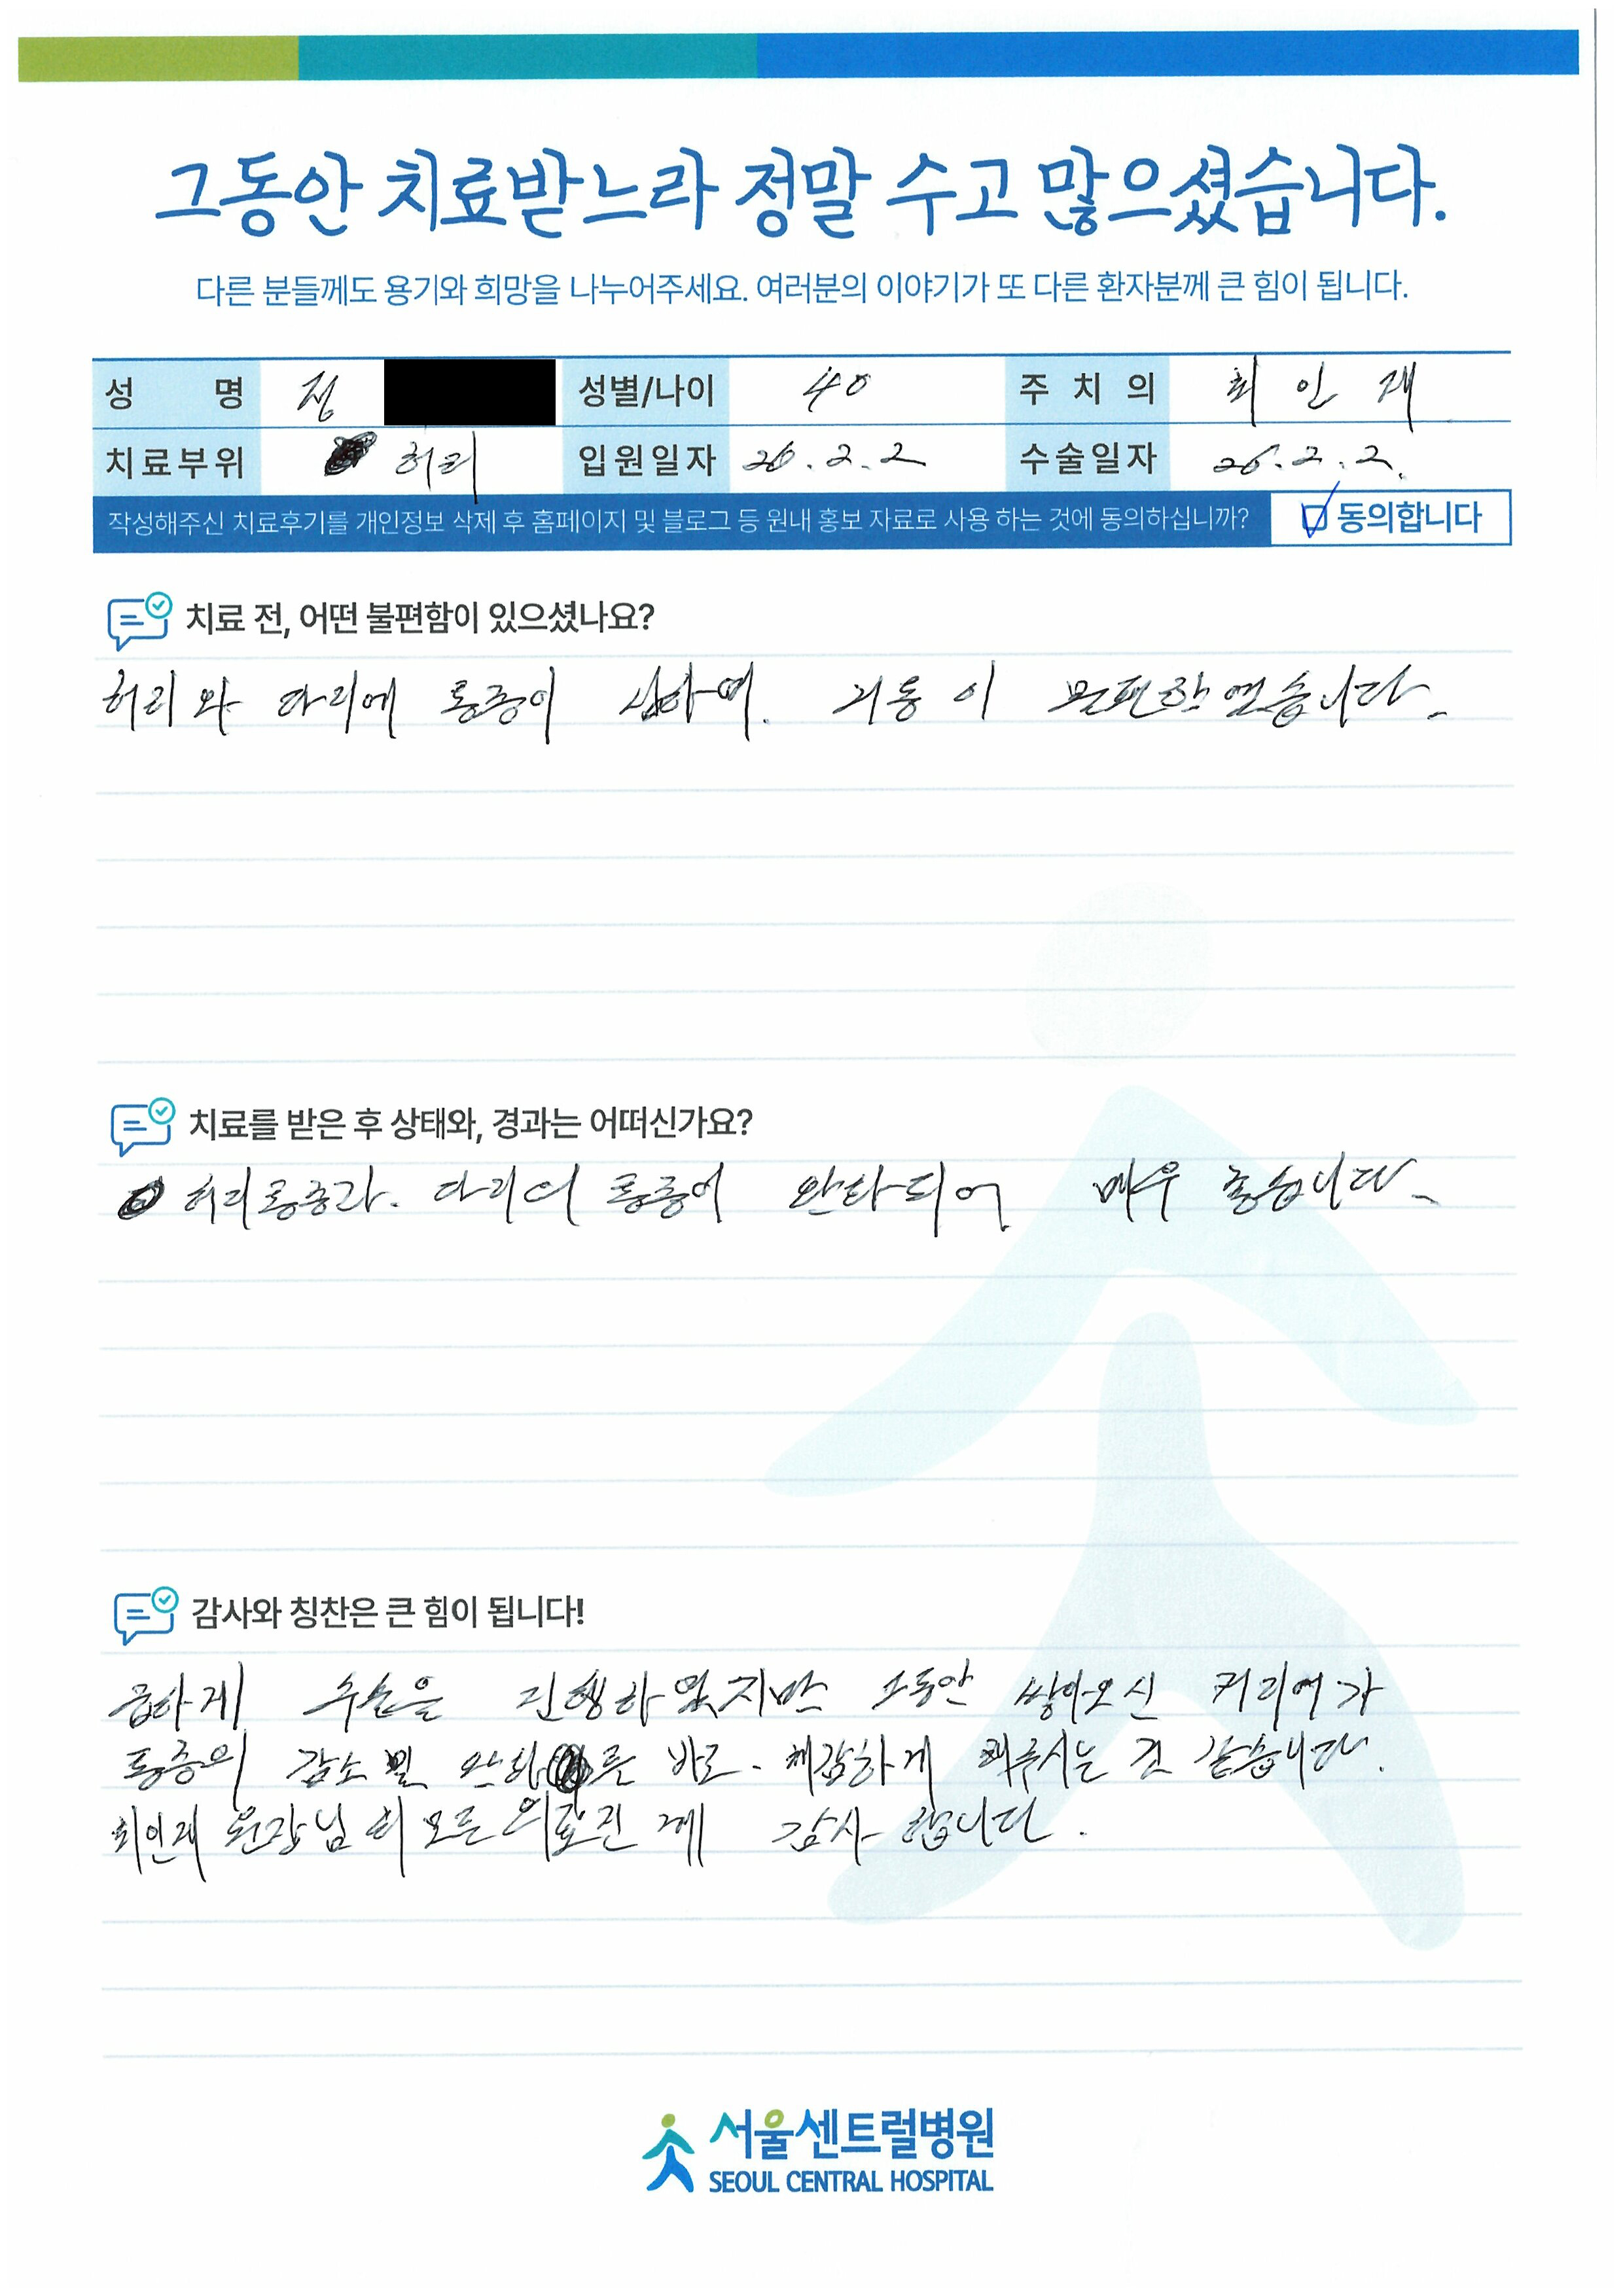 그동안 치료받느라 정말 수고 많으셨습니다.
다른 분들께도 용기와 희망을 나누어주세요. 여러분의 이야기가 또 다른 환자분께 큰 힘이 됩니다.
성 명 정 성별/나이 40 주 치 의 최 인 재
치료부위 허리 입원일자 26.2.2 수술일자 26.2.2.
작성해주신 치료후기를 개인정보 삭제 후 홈페이지 및 블로그 등 원내 홍보 자료로 사용 하는 것에 동의하십니까? 동의합니다
치료 전, 어떤 불편함이 있으셨나요?
허리와 다리에 통증이 심하여. 거동이 불편하였습니다.
치료를 받은 후 상태와, 경과는 어떠신가요?
허리통증과. 다리에 통증이 완화되어 매우 좋습니다.
감사와 칭찬은 큰 힘이 됩니다!
급하게 수술을 진행하였지만 그동안 쌓아오신 커리어가
통증의 감소 및 완화를 바로. 체감하게 해주시는 것 같습니다.
최인재 원장님 외 모든 의료진께 감사합니다.
서울센트럴병원
SEOUL CENTRAL HOSPITAL